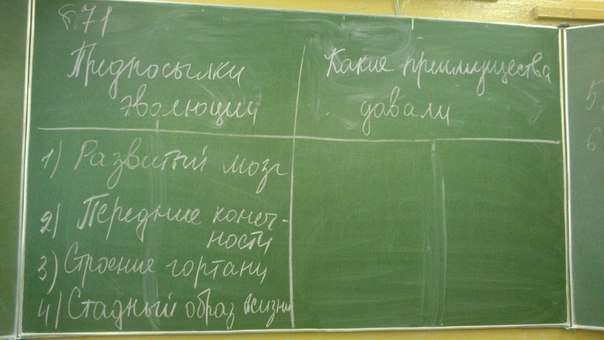 §.71
Предпосылки
эволюции
Какие преимущества
давали
1) Развитый мозг
2) Передние конеч-
ности
3) Строение гортани
4) Стадный образ жизни
5.
6